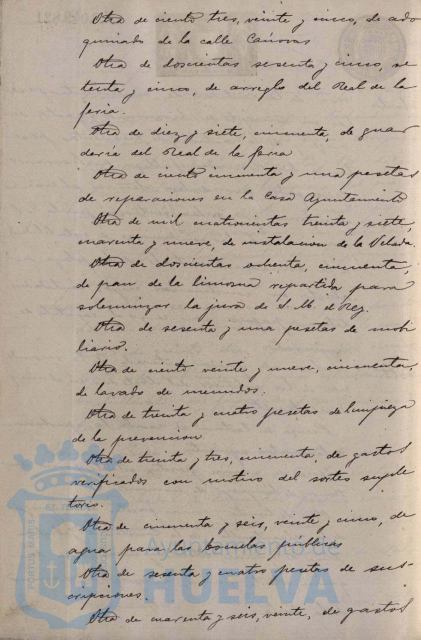 Otra de ciento tres, veinte y cinco, de ado
quinado de la calle Cánovas
Otra de doscientas sesenta y cinco, se
tenta y cinco, de arreglo del Real de la
feria.
Otra de diez y siete, cincuenta, de guar
deria del Real de la feria
Otra de ciento cincuenta y una pesetas
de reparaciones en la Casa Ayuntamiento
Otra de mil cuatrocientas treinta y siete,
cuarenta y nueve, de instalacion de la Velada.
Otra de doscientas ochenta, cincuenta,
de pan de la limosna repartida para
solemnizar la jura de S. M. el Rey.
Otra de sesenta y una pesetas de mobi
liario.
Otra de ciento veinte y nueve, cincuenta,
de lavado de menudos.
Otra de treinta y cuatro pesetas de limpieza
de la prevencion
Otra de treinta y tres, cincuenta, de gastos
verificados con motivo del sorteo suple
torio.
Otra de cincuenta y seis, veinte y cinco, de
agua para las Escuelas públicas
Otra de sesenta y cuatro pesetas de sus-
cripciones.
Otra de cuarenta y seis, veinte, de gastos
Ayuntamiento de
HUELVA
PORTUS MARIS